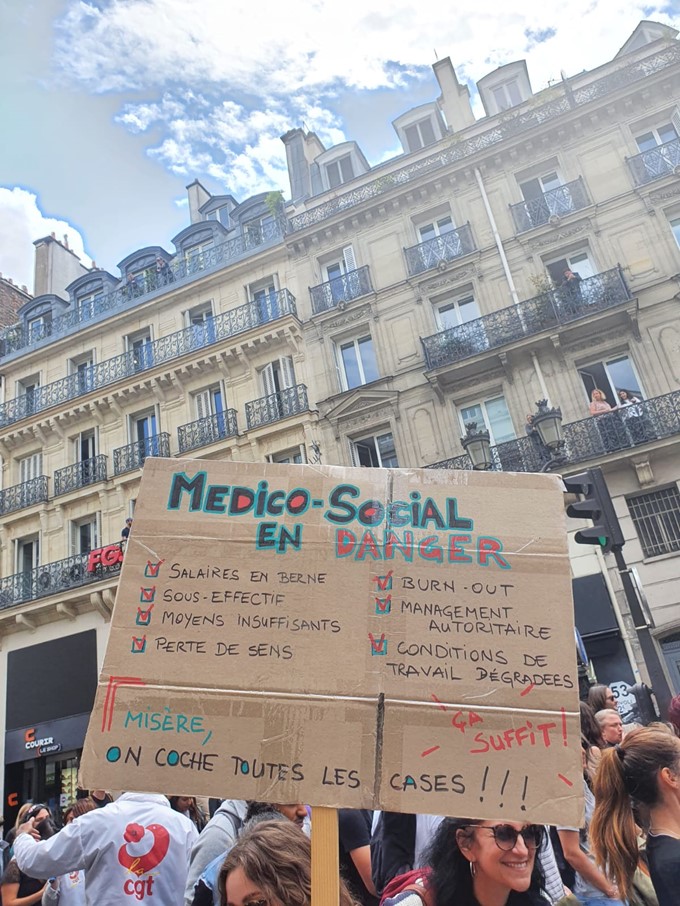 MEDICO-SOCIAL
EN DANGER
SALAIRES EN BERNE
SOUS-EFFECTIF
MOYENS INSUFFISANTS
PERTE DE SENS
BURN-OUT
MANAGEMENT
AUTORITAIRE
CONDITIONS DE
TRAVAIL DÉGRADEES
MISÈRE,
ON COCHE TOUTES LES CASES !!!
ÇA
SUFFIT!
FG
COURIR
LE SHOP
53
la
cgt